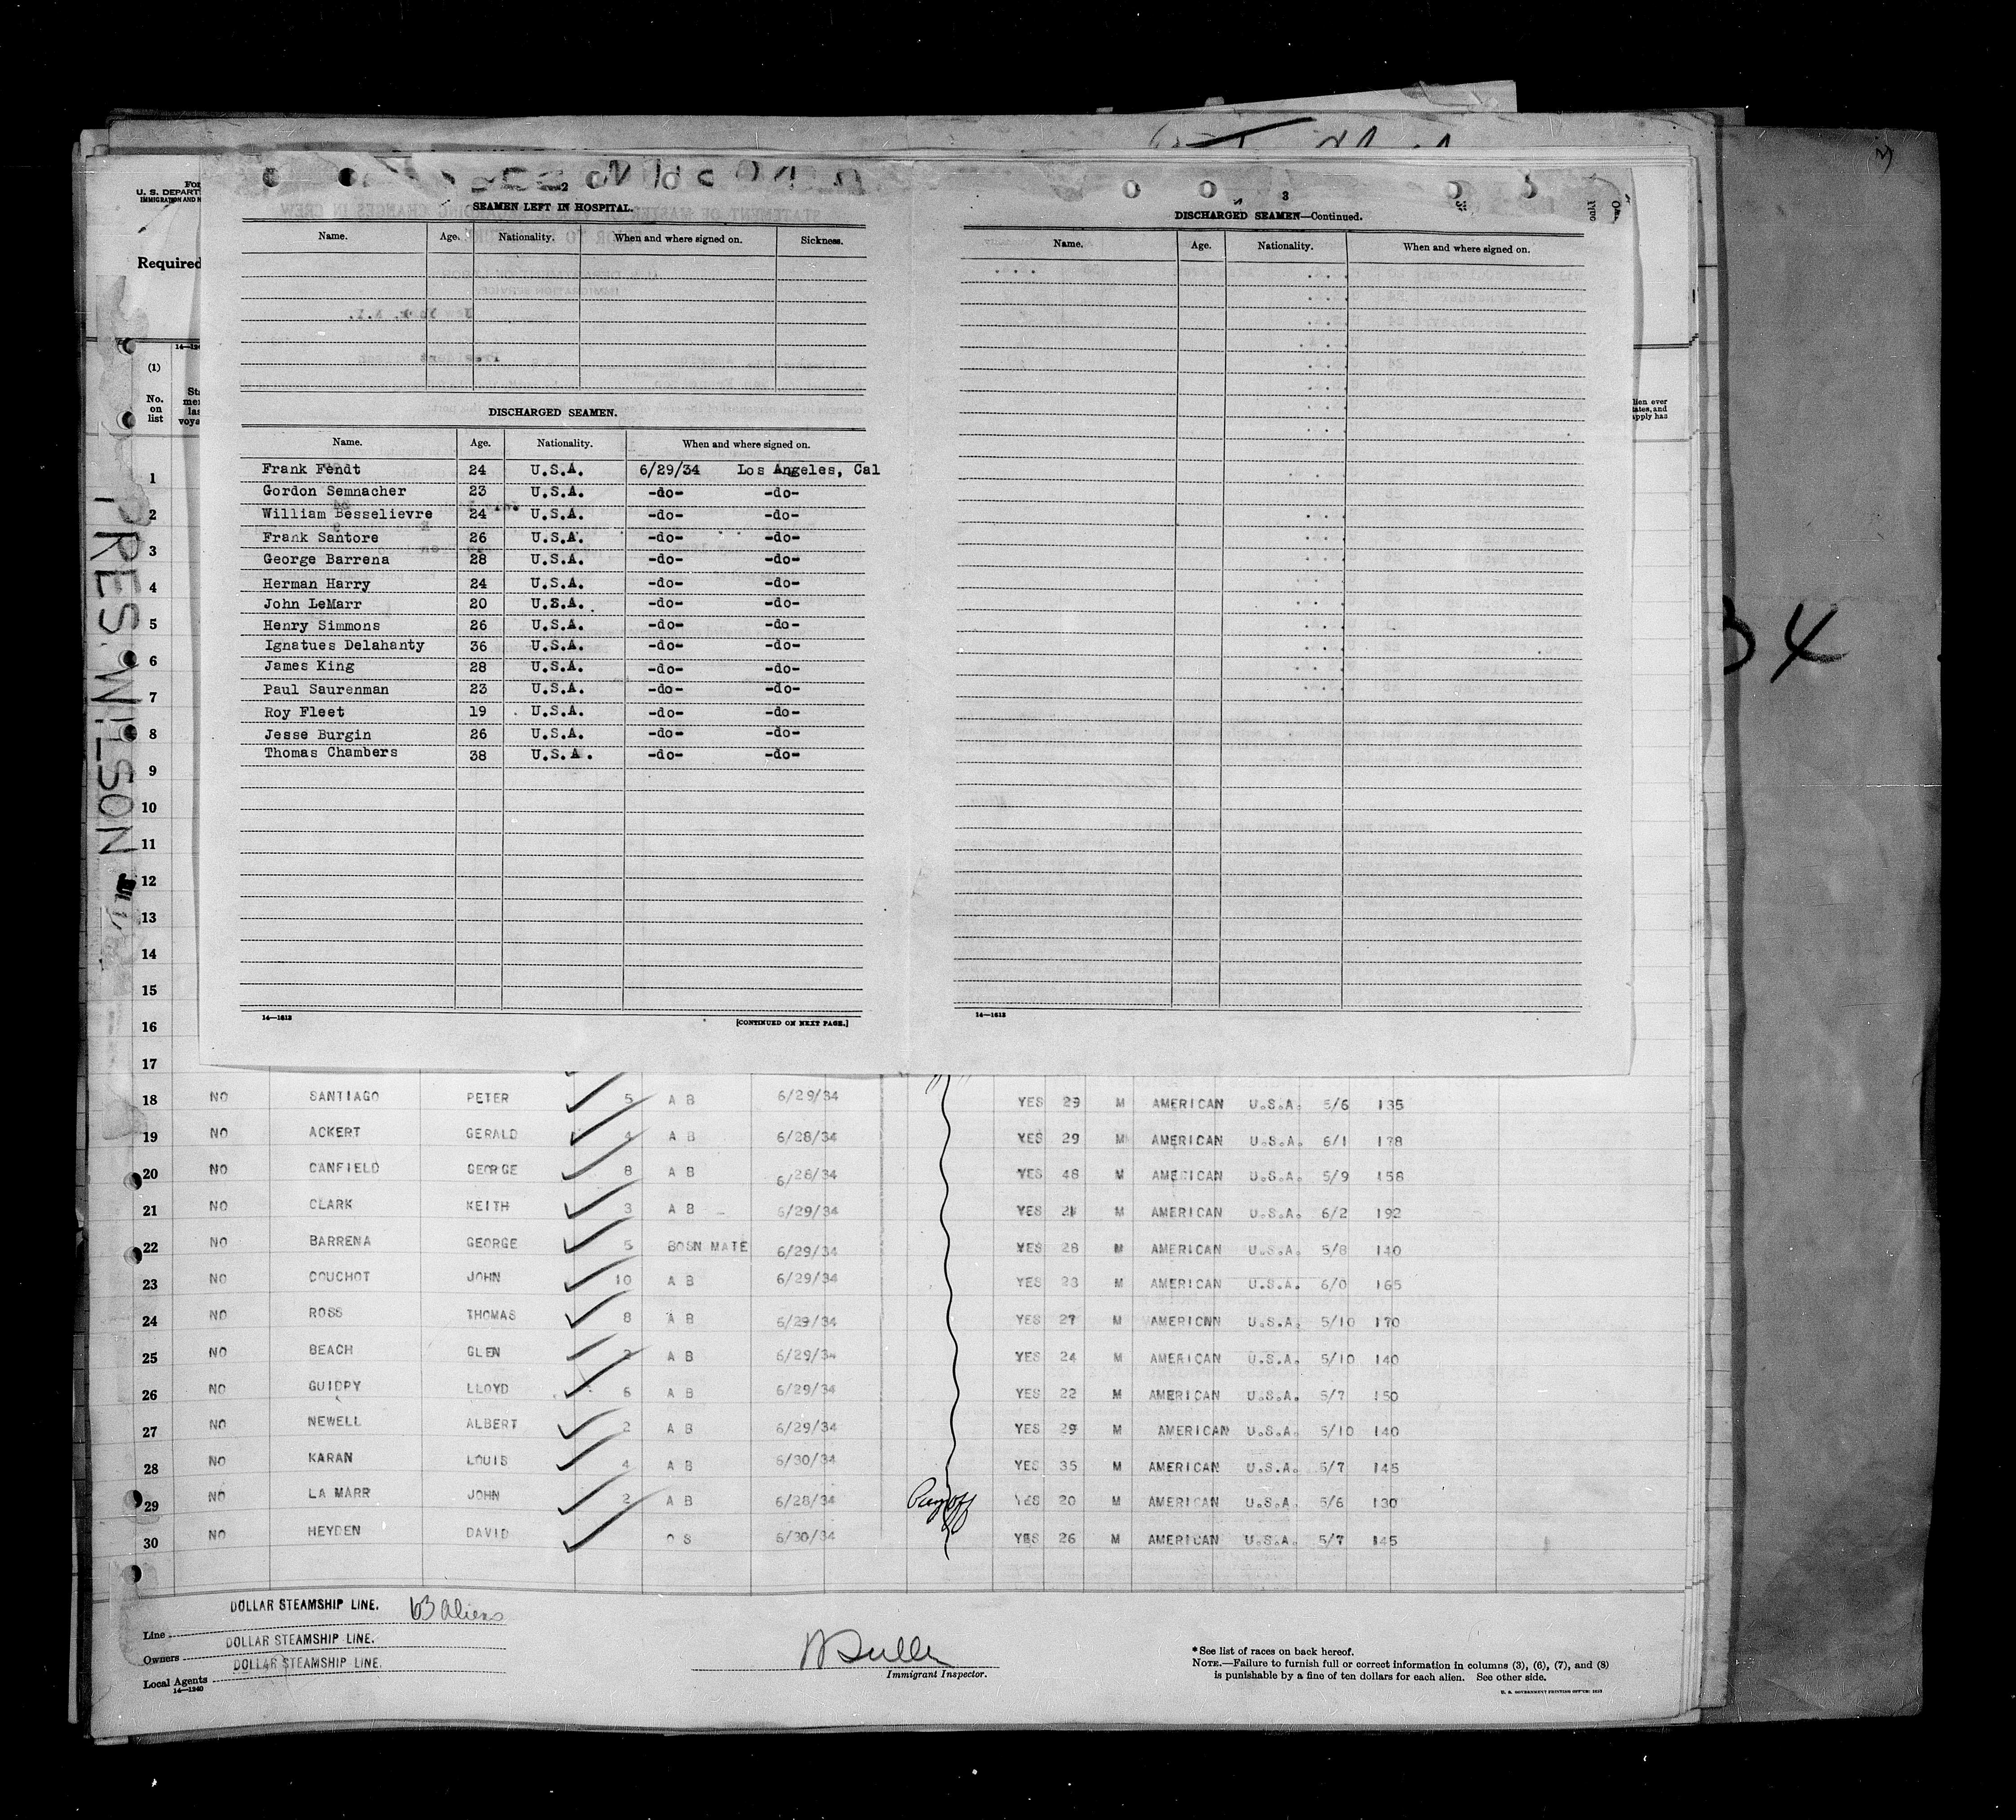 2
SEAMEN LEFT IN HOSPITAL.
Name. Age. Nationality. When and where signed on. Sickness.
DISCHARGED SEAMEN.
Name. Age. Nationality. When and where signed on.
Frank Fendt 24 U.S.A. 6/29/34 Los Angeles, Cal
Gordon Semnacher 23 U.S.A. -do- -do-
William Besselievre 24 U.S.A. -do- -do-
Frank Santore 26 U.S.A. -do- -do-
George Barrena 28 U.S.A. -do- -do-
Herman Harry 24 U.S.A. -do- -do-
John LeMarr 20 U.S.A. -do- -do-
Henry Simmons 26 U.S.A. -do- -do-
Ignatues Delahanty 36 U.S.A. -do- -do-
James King 28 U.S.A. -do- -do-
Paul Saurenman 23 U.S.A. -do- -do-
Roy Fleet 19 U.S.A. -do- -do-
Jesse Burgin 26 U.S.A. -do- -do-
Thomas Chambers 38 U.S.A. -do- -do-
14—1613
[CONTINUED ON NEXT PAGE.]
3
DISCHARGED SEAMEN—Continued.
Name. Age. Nationality. When and where signed on.
14—1613
U. S. DEPART
IMMIGRATION AND N
Required
(1)
No. on list
PRES. WILSON
34
1
2
3
4
5
6
7
8
9
10
11
12
13
14
15
16
17
18 NO SANTIAGO PETER 5 A B 6/29/34 YES 29 M AMERICAN U.S.A. 5/6 135
19 NO ACKERT GERALD 4 A B 6/28/34 YES 29 M AMERICAN U.S.A. 6/1 178
20 NO CANFIELD GEORGE 8 A B 6/28/34 YES 48 M AMERICAN U.S.A. 5/9 158
21 NO CLARK KEITH 3 A B 6/29/34 YES 21 M AMERICAN U.S.A. 6/2 192
22 NO BARRENA GEORGE 5 BOSN MATE 6/29/34 YES 28 M AMERICAN U.S.A. 5/8 140
23 NO COUCHOT JOHN 10 A B 6/29/34 YES 23 M AMERICAN U.S.A. 6/0 165
24 NO ROSS THOMAS 8 A B 6/29/34 YES 27 M AMERICNN U.S.A. 5/10 170
25 NO BEACH GLEN 2 A B 6/29/34 YES 24 M AMERICAN U.S.A. 5/10 140
26 NO GUIDRY LLOYD 6 A B 6/29/34 YES 22 M AMERICAN U.S.A. 5/7 150
27 NO NEWELL ALBERT 2 A B 6/29/34 YES 29 M AMERICAN U.S.A. 5/10 140
28 NO KARAN LOUIS 4 A B 6/30/34 YES 35 M AMERICAN U.S.A. 5/7 145
29 NO LA MARR JOHN 2 A B 6/28/34 Payoff YES 20 M AMERICAN U.S.A. 5/6 130
30 NO HEYDEN DAVID O S 6/30/34 YES 26 M AMERICAN U.S.A. 5/7 145
Line DOLLAR STEAMSHIP LINE. 63 aliens
Owners DOLLAR STEAMSHIP LINE.
Local Agents DOLLAR STEAMSHIP LINE.
14—1240
Immigrant Inspector.
*See list of races on back hereof.
NOTE.—Failure to furnish full or correct information in columns (3), (6), (7), and (8)
is punishable by a fine of ten dollars for each alien. See other side.
U. S. GOVERNMENT PRINTING OFFICE: